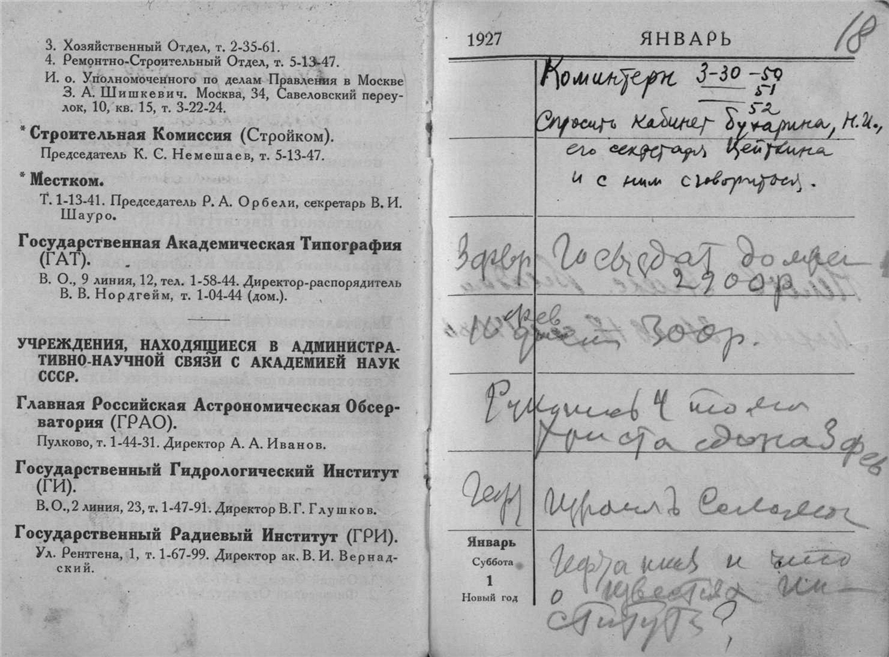 3. Хозяйственный Отдел, т. 2-35-61.
4. Ремонтно-Строительный Отдел, т. 5-13-47.
И. о. Уполномоченного по делам Правления в Москве
З. А. Шишкевич. Москва, 34, Савеловский переу-
лок, 10, кв. 15, т. 3-22-24.
* Строительная Комиссия (Стройком).
Председатель К. С. Немешаев, т. 5-13-47.
* Местком.
Т. 1-13-41. Председатель Р. А. Орбели, секретарь В. И.
Шауро.
Государственная Академическая Типография
(ГАТ).
В. О., 9 линия, 12, тел. 1-58-44. Директор-распорядитель
В. В. Нордгейм, т. 1-04-44 (дом.).
УЧРЕЖДЕНИЯ, НАХОДЯЩИЕСЯ В АДМИНИСТРА-
ТИВНО-НАУЧНОЙ СВЯЗИ С АКАДЕМИЕЙ НАУК
СССР.
Главная Российская Астрономическая Обсер-
ватория (ГРАО).
Пулково, т. 1-44-31. Директор А. А. Иванов.
Государственный Гидрологический Институт
(ГИ).
В. О., 2 линия, 23, т. 1-47-91. Директор В. Г. Глушков.
Государственный Радиевый Институт (ГРИ).
Ул. Рентгена, 1, т. 1-67-99. Директор ак. В. И. Вернад-
ский.
18
1927 ЯНВАРЬ
Коминтерн 3-30-50
51
52
Спросить кабинет Бухарина, Н. И.,
его секретаря Цейтлина
и с ним сговориться.
3 февр Госиздат должен
2900р
фев
300р.
4 тома
3 фев
Январь
Суббота
1
Новый год
и что
о известиях Ин-
ститута?